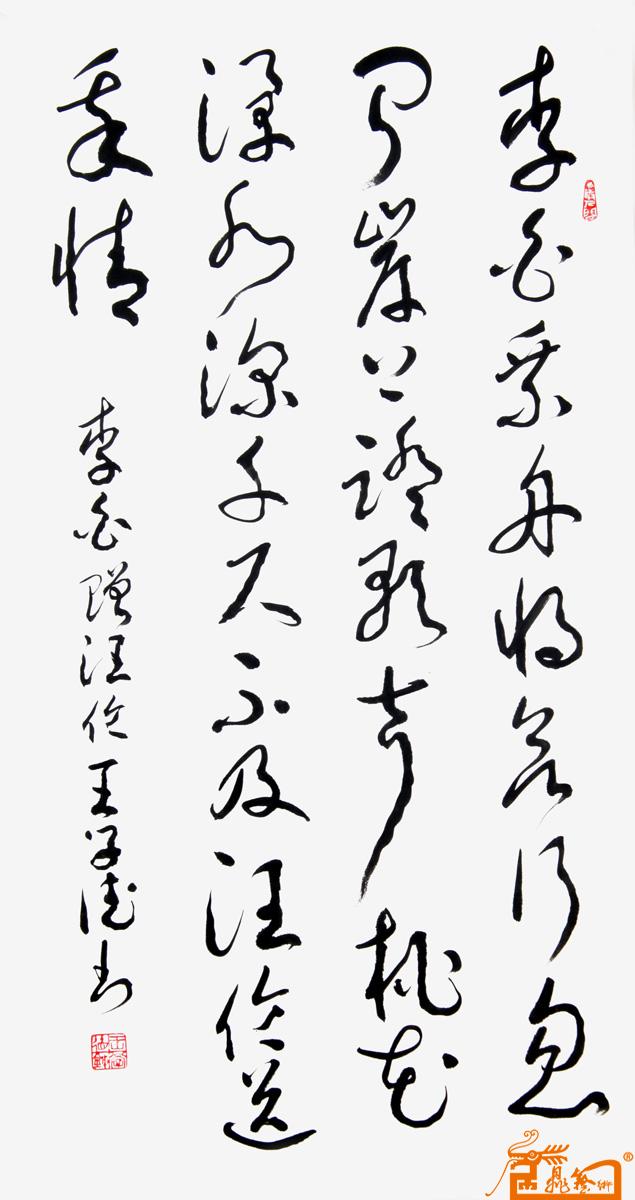 李白乘舟将欲行忽
闻岸上踏歌声桃花
潭水深千尺不及汪伦送
我情
李白赠汪伦 王学德书